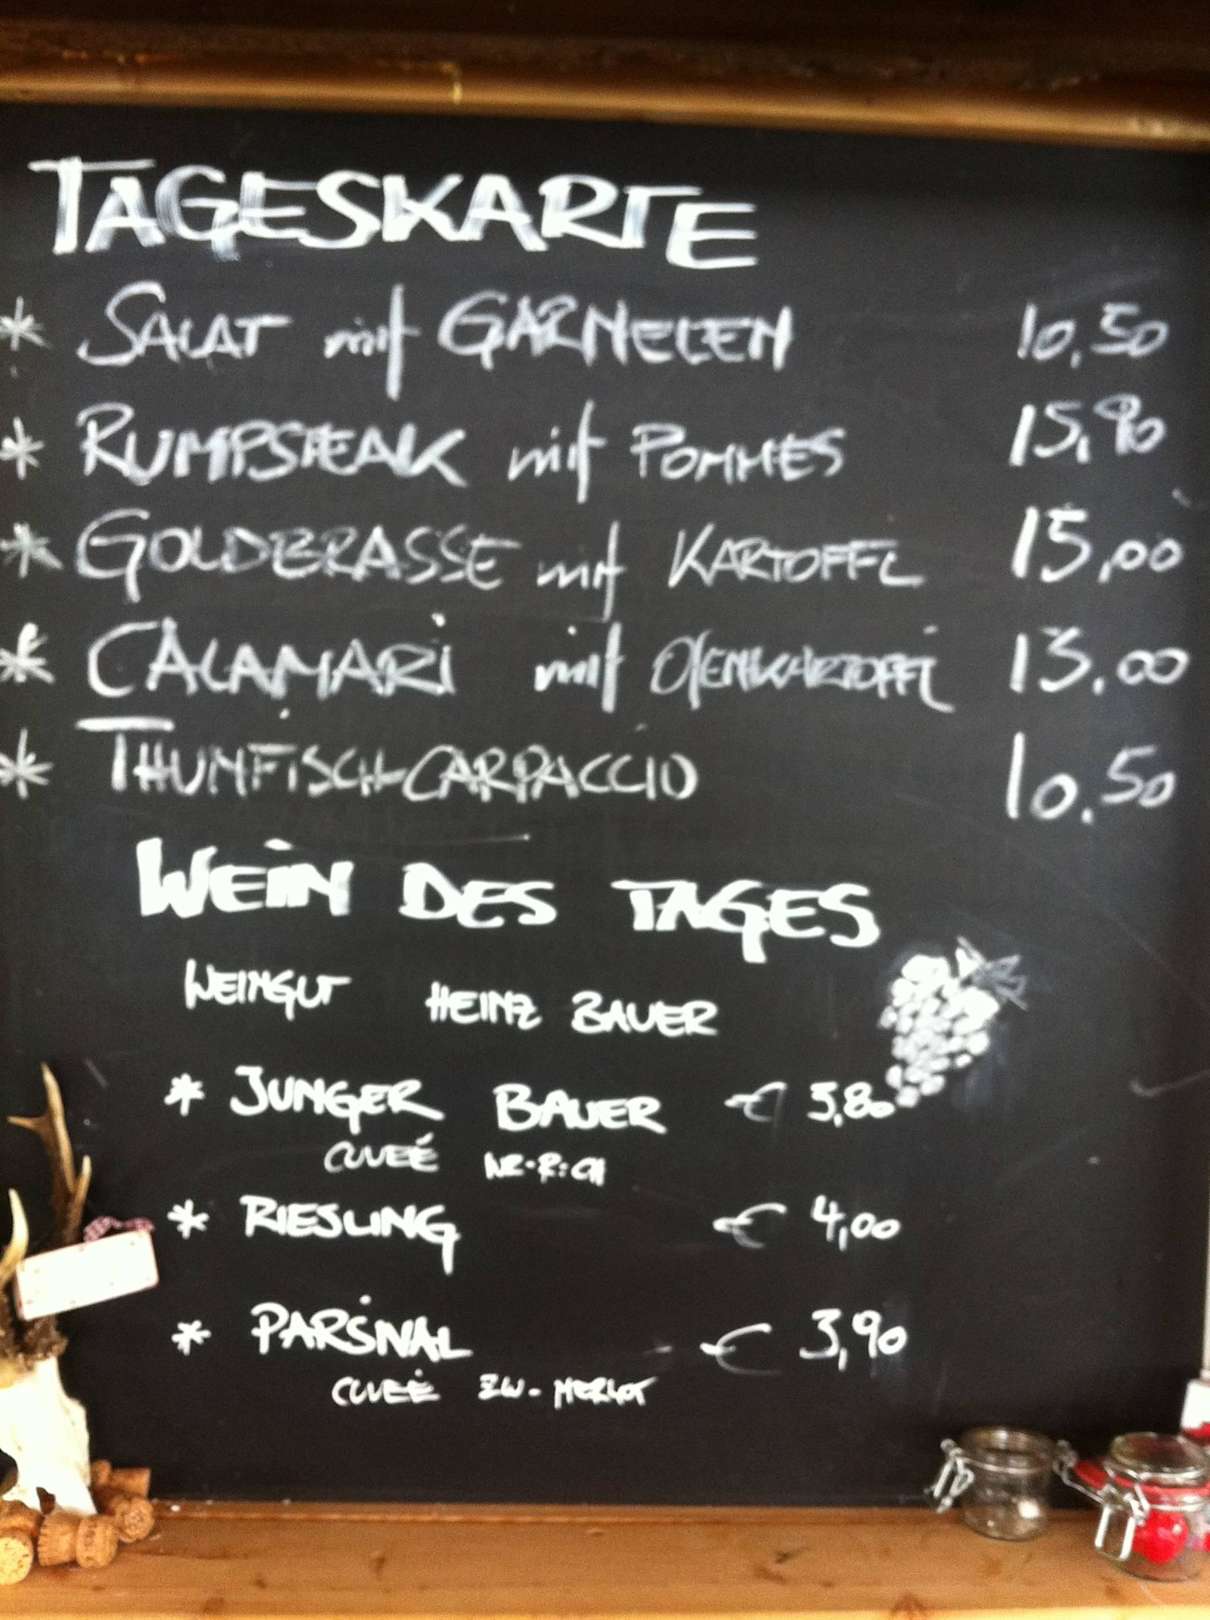 TAGESKARTE
* SALAT mit GARNELEN 10,50
* RUMPSTEAK mit POMMES 15,90
* GOLDBRASSE mit KARTOFFL 15,00
* CALAMARI mit OFENKARTOFFL 13,00
* THUNFISCH-CARPACCIO 10,50
WEIN DES TAGES
WEINGUT HEINZ BAUER
* JUNGER BAUER € 3,80
CUVEÉ WR-R-CH
* RIESLING € 4,00
* PARSIVAL € 3,90
CUVEÉ ZW-MERLOT